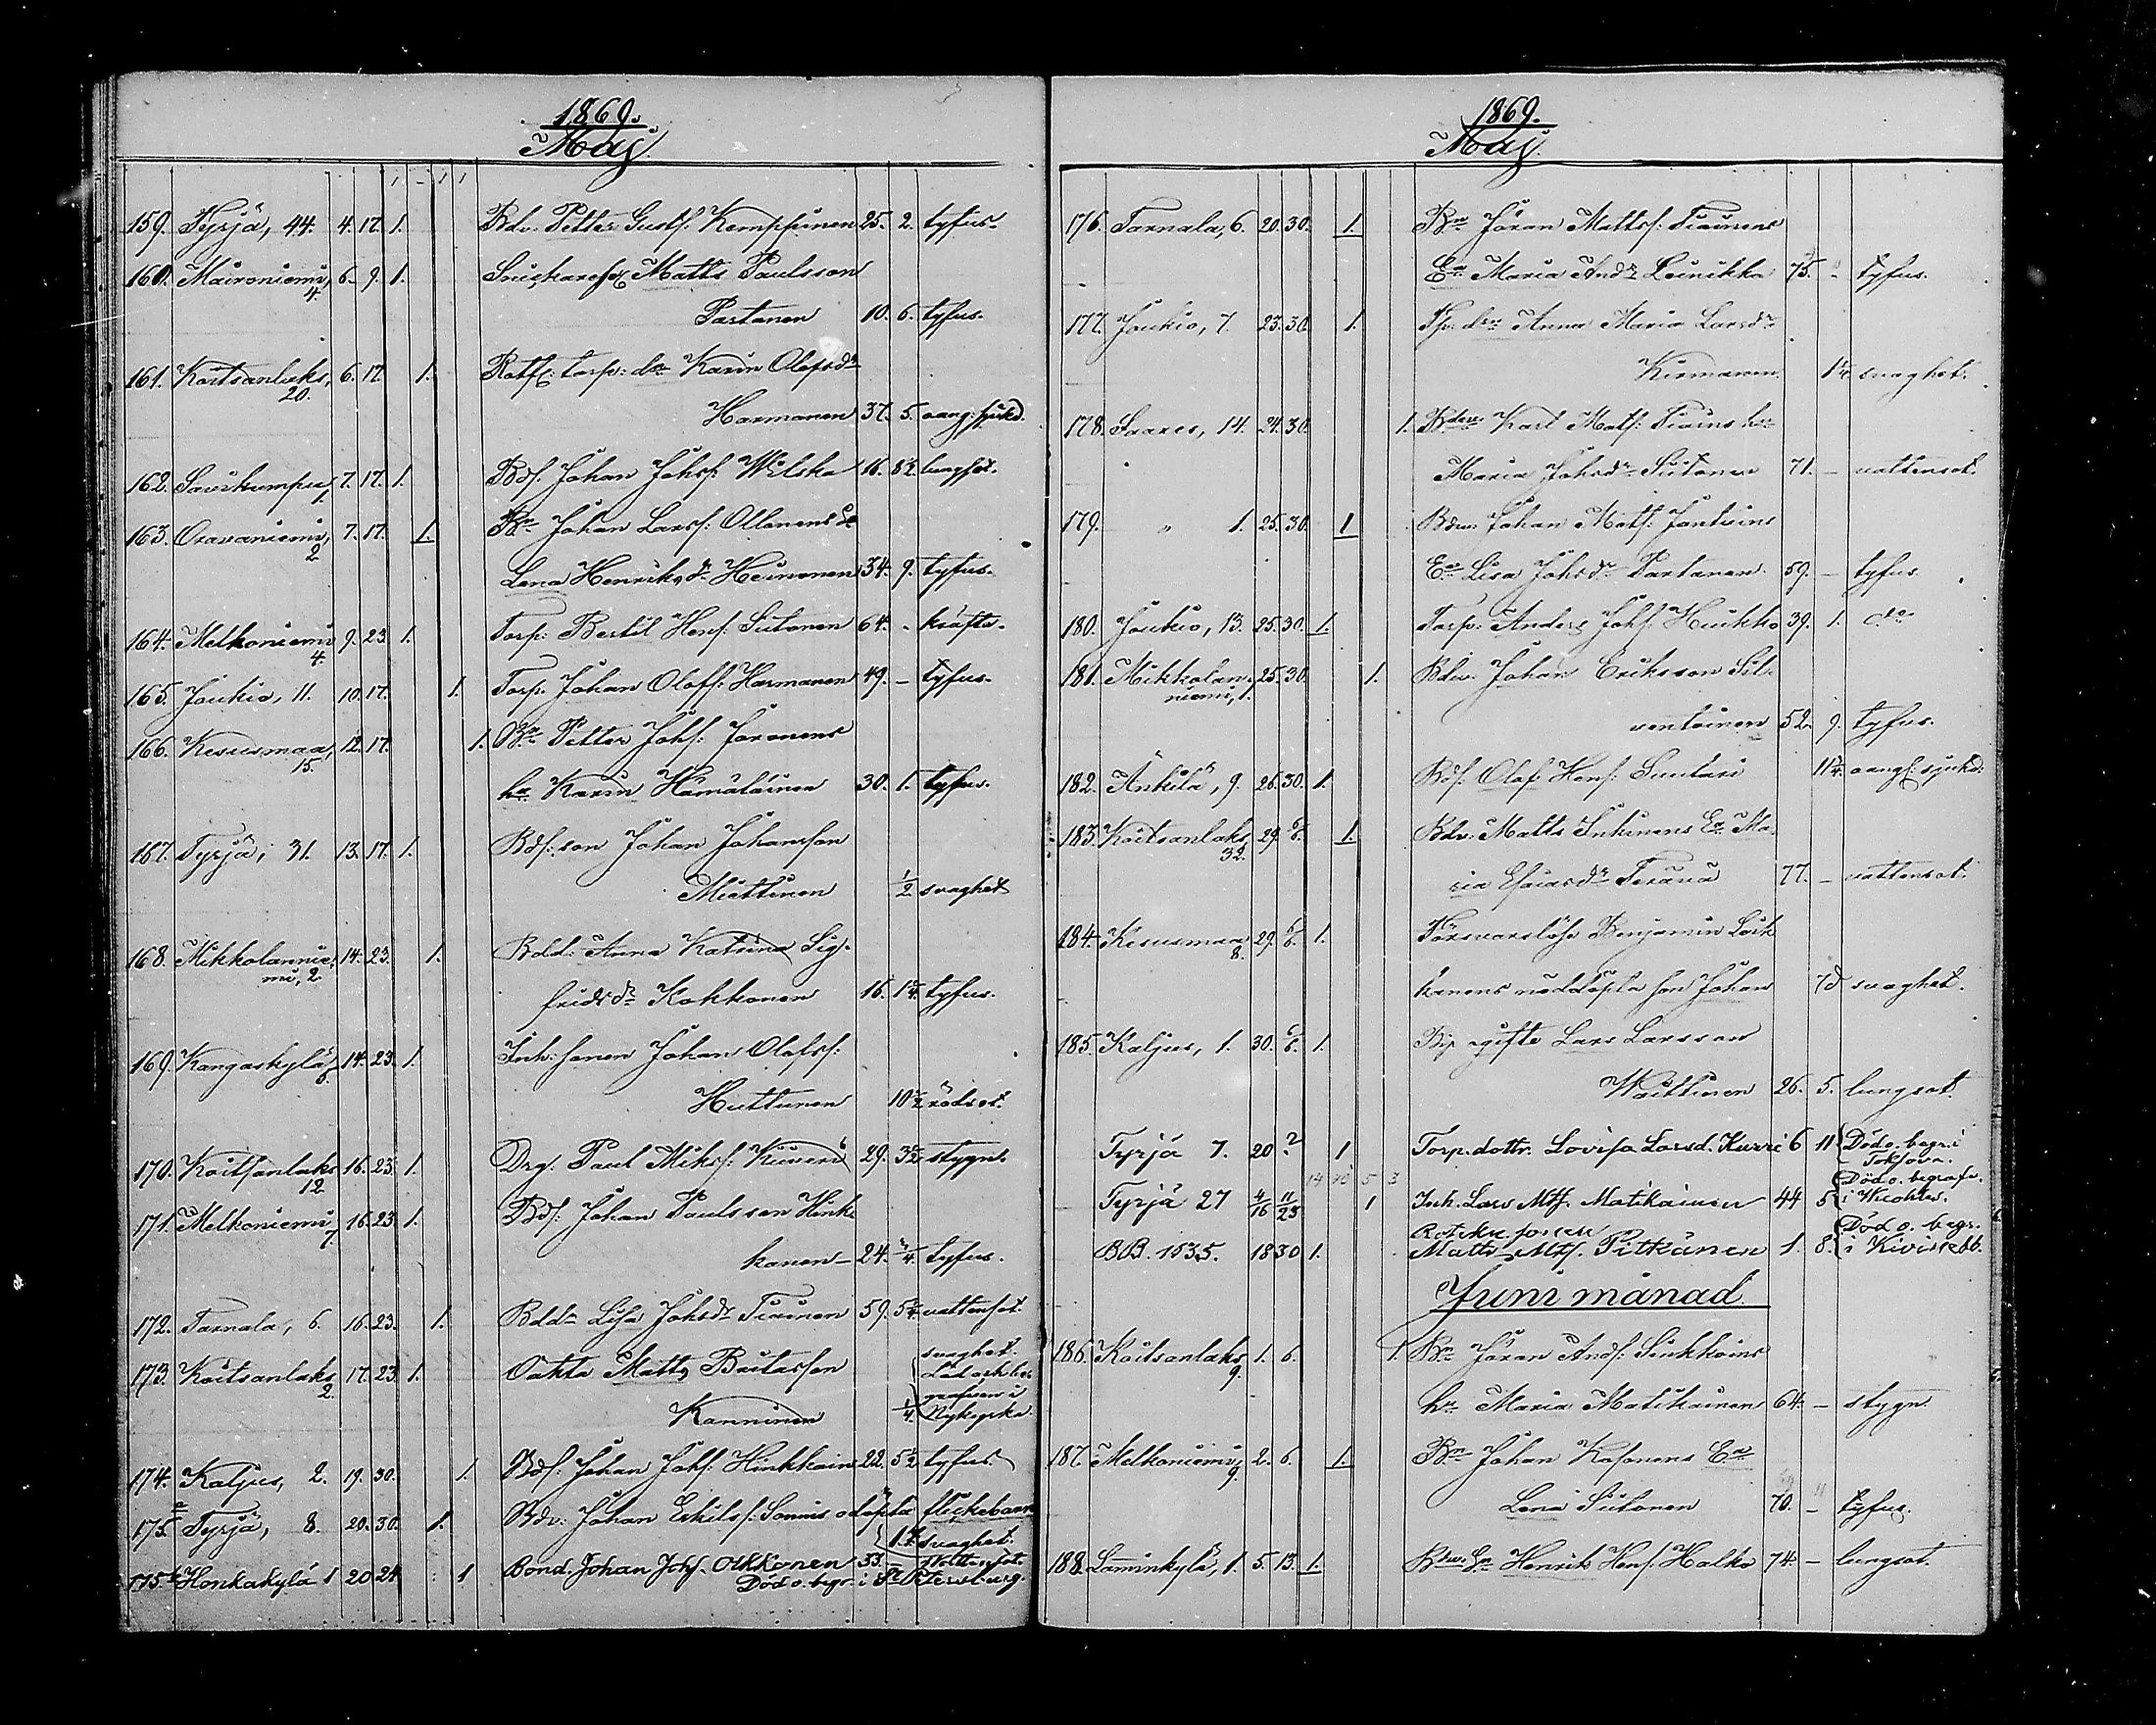 1869.
Maj.
159. Tyrjä, 44. 4. 17. 1. Bdv. Petter Gustf. Kemppinen 25. 2. tyfus.
160. Maironiemi, 6. 9. 1. Snickaresf. Matts Paulsson
4. Partanen 10. 6. tyfus.
161. Koitsanlaks, 6. 17. 1. Rotf. torp: dr Karin Olofsdr
20. Harmanen 37. 5. oang: sjukd.
162. Savikumpu, 7. 17. 1. Bdf. Johan Johsf. Wilska 16. 8 1/2. lungsot.
1.
163. Oravaniemi, 7. 17. 1. Bn Johan Larsf: Ollonens Ea
2 Lena Henriksdr Heinonen 34. 9. tyfus.
164. Melkoniemi 9. 23. 1. Torp: Bertil Henf. Siitonen 64. - kräfta.
4.
165. Joukio, 11. 10. 17. 1. Torp. Johan Oloff. Harmanen 49. – tyfus.
166. Kesusmaa, 12. 17. 1. Bn Petter Johf: Joronens
15. hu Karin Hämäläinen 30. 1. tyfus.
167. Tyrjä, 31. 13. 17. 1. Bdf: son Johan Johansson
Miettinen 1/2 svaghet
168. Mikkolannie- 14. 23. 1. Bdd: Anna Katrina Sig-
mi, 2. fridsdr Kokkonen 16. 1 1/4. tyfus.
169. Kangaskylä 14. 23. 1. Inh: sonen Johan Olofsf:
6. Huttunen 10 1/2 rödsot.
170. Koitsanlaks 16. 23. 1. Drg. Paul Miksf. Kuiveri 29. 3 1/2 stygn.
12
171. Melkoniemi 16. 23. 1. Bdf: Johan Paulsson Hink-
7. kanen – 24. 3/4. tyfus.
172. Tarnala, 6. 16. 23. 1. Bddr Lisa Johsdr Tiainen 59. 5 1/4. vattensot.
173. Koitsanlaks 17. 23. 1. Oakta Matts Britasson svaghet.
2. Död och be-
grafven i
Kanninen 1/4. Nykyrka.
174. Kaljus, 2. 19. 30. 1. Bdf: Johan Johf. Hinkkain 22. 5 1/2 tyfus.
175a Tyrjä, 8. 20. 30. 1. Bdv: Johan Eskilsf. Sonnis odöpta flickebarn
1 t. svaghet.
175b Honkakylä 1 20 24 1 Bond. Johan Johf. Okkonen 33. – Vattensot.
Död o. begr. i St Petersburg.
1869.
Maj.
176. Tarnala, 6. 20. 30. 1. Bn Jöran Mattsf: Tiainens
Ea Maria Andr Leinikka 75. - tyfus.
177. Joukio, 7. 23. 30. 1. Tp. dr Anna Maria Larsdr
Kiemanen. 1 1/4. svaghet.
178. Saares, 14. 24. 30. 1. Bdvs Karl Matsf: Tiains hu
Maria Johsdr Siitonen 71. – vattensot.
179. " 1. 25. 30. 1 Bdv. Johan Matsf: Jantuins
Ea Lisa Johsdr Partanen 59. – tyfus.
180. Joukio, 13. 25. 30. 1. Torp. Anders Johf. Huikko 39. 1. do
181. Mikkolan- 25. 30. 1. Bdv. Johan Eriksson Sil-
niemi, 1. ventoinen 52. 9. tyfus.
182. Änkilä, 9. 26. 30. 1. Bdf. Olof Henf. Suutari 11 1/4. oang: sjukd:
183. Koitsanlaks 29. 6/6. 1. Bdv. Matts Inkinens Ea Ma-
32. ria Esaiasdr Terävä 77. – vattensot.
184. Kesusmaa 29. 6/6. 1. Försvarslöse Benjamin Luk-
8. kanens nöddöpta son Johan 7d svaghet.
185. Kaljus, 1. 30. 6/6. 1. Bp. ogifte Lars Larsson
Waittinen 26. 5. lungsot.
Tyrjä 7. 20 ? 1 Torp. dottr. Lovisa Larsd. Kurri 6 11 Död o. begr. i
Toksova.
14 10 5 3
Tyrjä 27 4/16 11/23 1 Inh. Lars Mtf. Matikainen 44 5 Död o. begrafv.
i Kuolas.
BB. 1535. 18 30 1. Matts Mtf. Pitkänen 1. 8. Död o. begr.
i Kivineb b.
Juni månad.
186. Koitsanlaks 1. 6. 1. Bn Jöran Andf. Sinkkoins
9. hu Maria Matikainen 64. – stygn.
187. Melkoniemi, 2. 6. 1. Bn Johan Kosonens Ea
9. Lena Siitonen 70. – tyfus.
188. Lamminkylä, 1. 5. 13. 1. Bdv. En Henrik Henf. Halko 74. – lungsot.